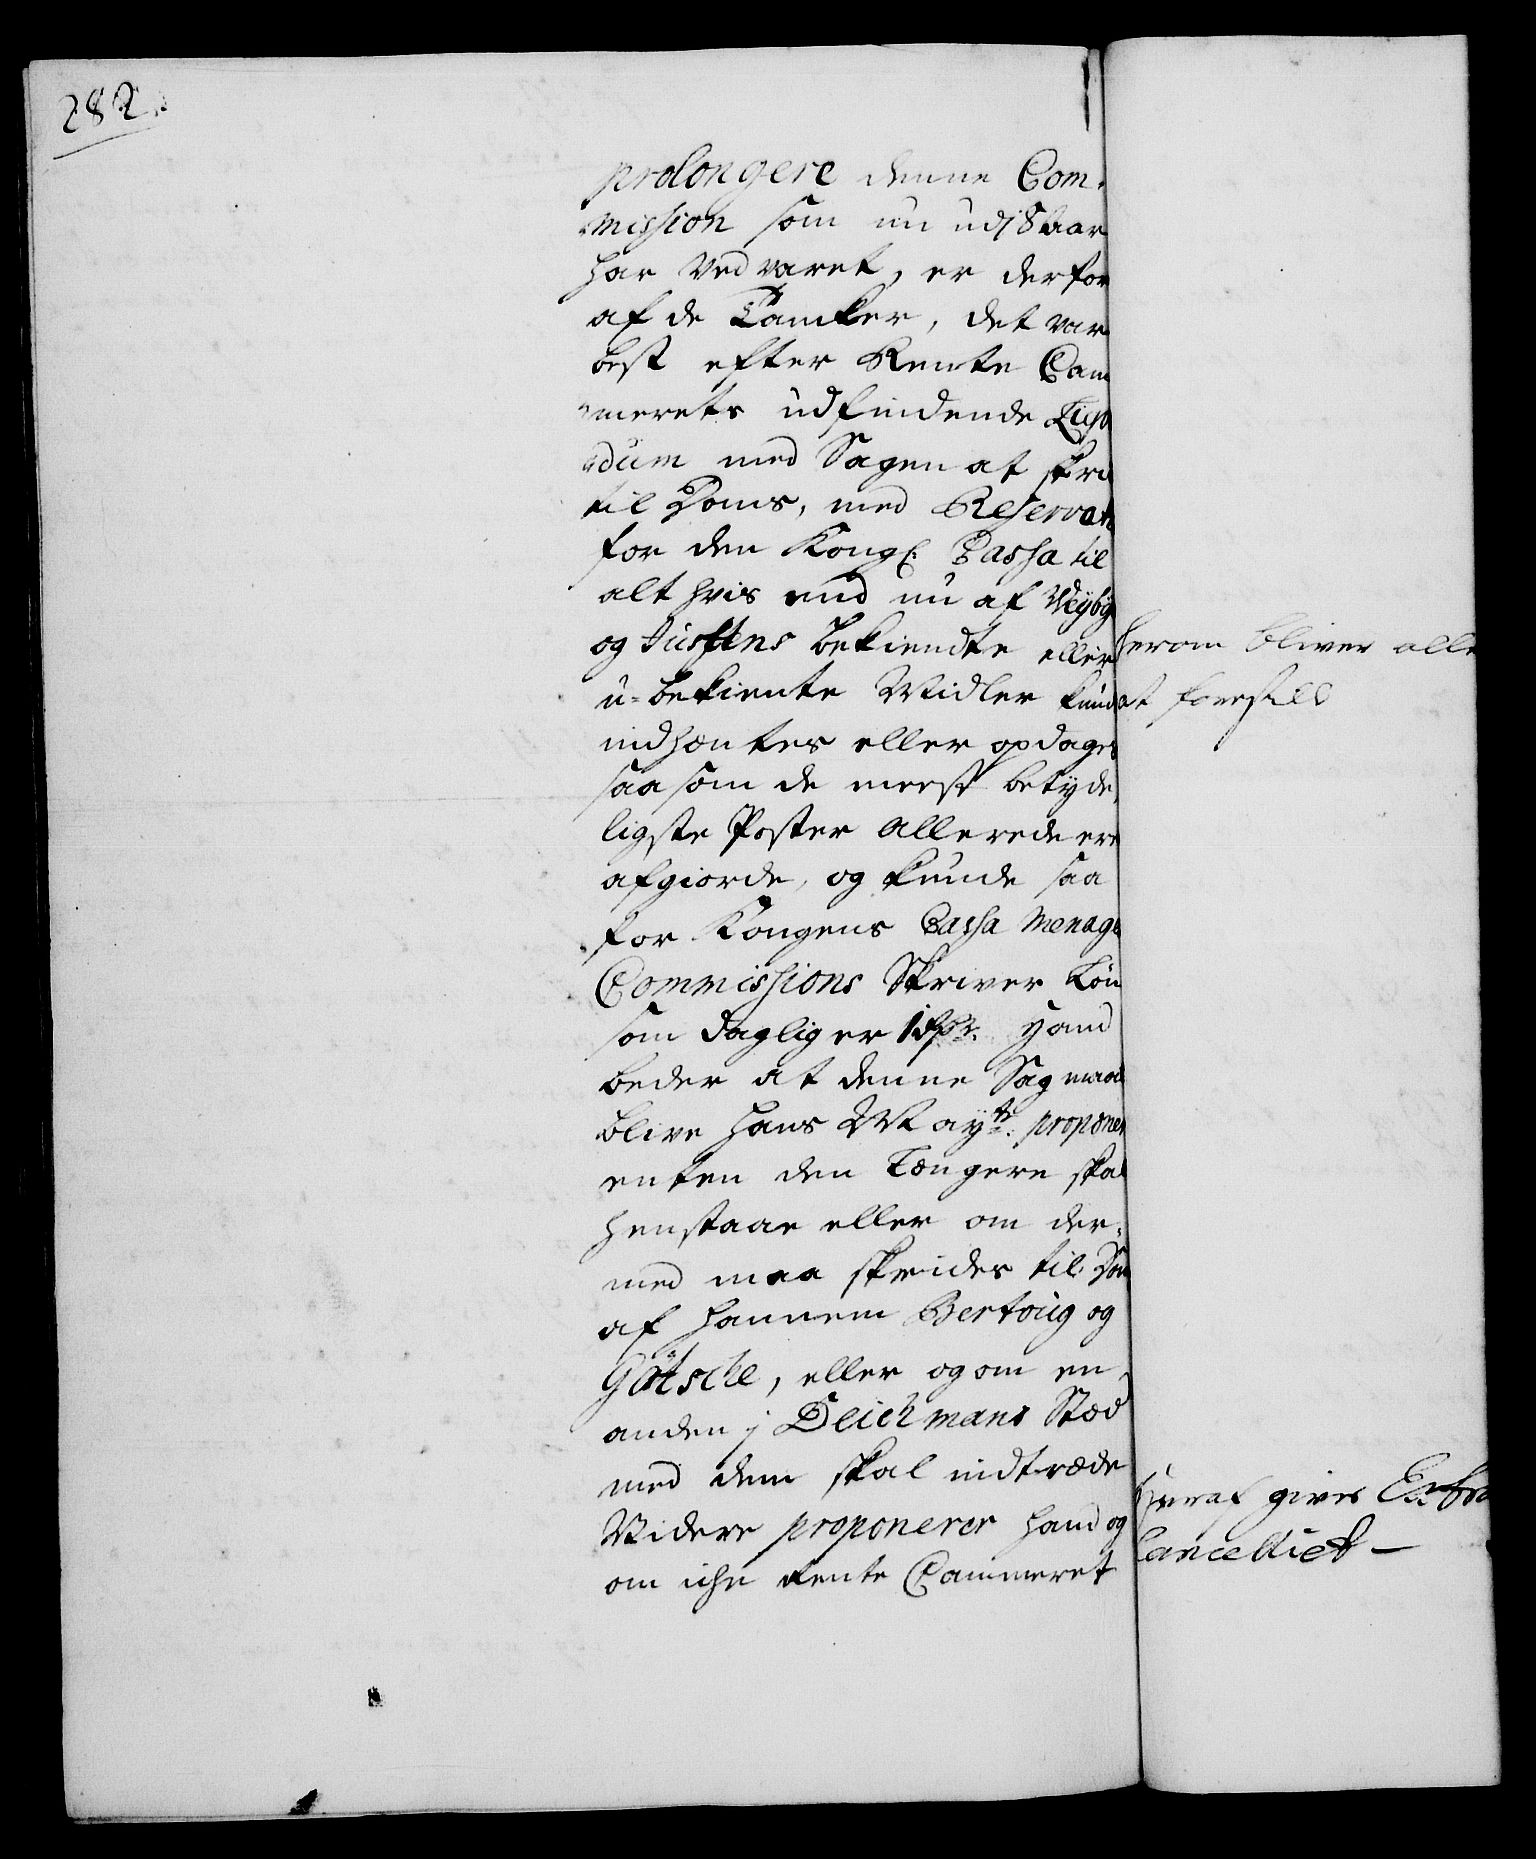 282.
prolongere denne Com-
mission som nu udj 8 aar
har Vedvaret, er derfor
af de Tancker, det var
best efter Rente Cam
merets udfindende
dum med Sagen at skri
til Doms, med Reservat
for den Kongl: Cassa til
alt hvis end nu af Weyby
og Justens bekiendte eller
u-bekiente Midler kund
indhentes eller opdages
saasom de meest betyde,
ligste Poster allerede ere
afgiorde, og kunde saa
for Kongens Cassa menage
Commissions Skriver Løn
som daglig er 1 Hand
beder at denne Sag maatt
blive Hans Mayts: propone
enten den Længere skal
henstaae eller om der-
med maa skrides til Dom
af hannem Bertoug og
Götsche, eller og om en
anden j Deichmans Stæd
med dem skal indtræde
Videre proponerer hand og
om iche Rente Cammeret
herom bliver alle
at forestill
Heraf gives Extra
Cancelliet —